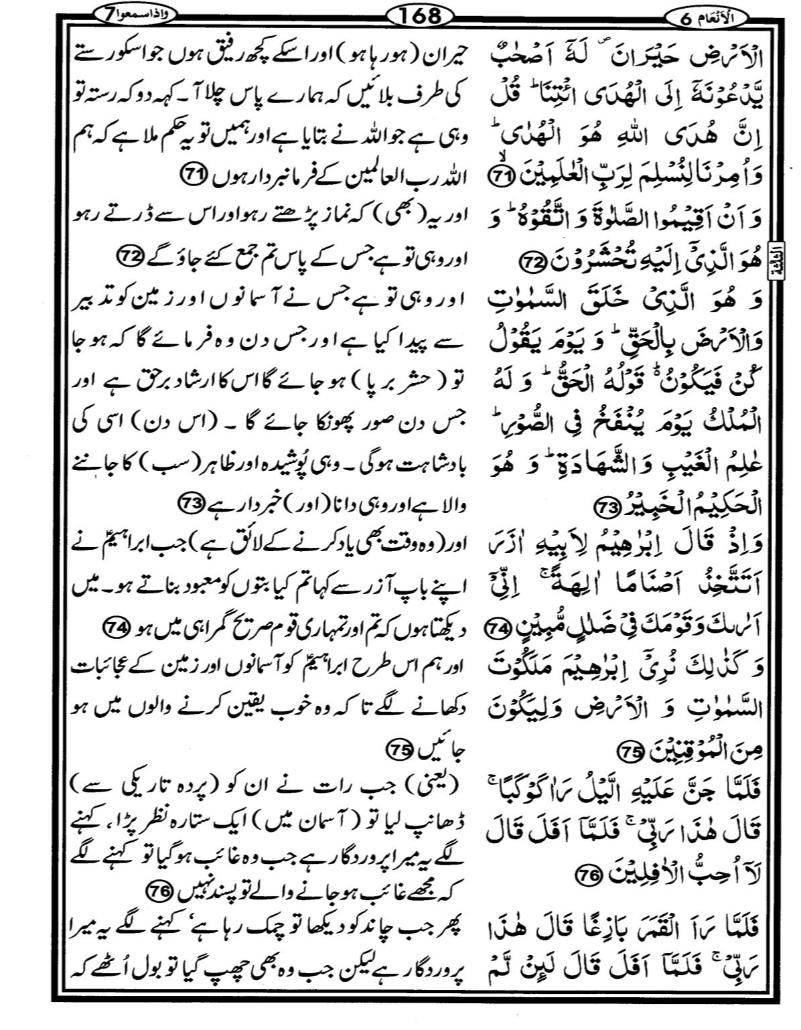 الْاَنْعَام 6
168
واذاسمعوا 7
الْاَرْضِ حَيْرَانَ ۪ لَهٗۤ اَصْحٰبٌ
يَّدْعُوْنَهٗۤ اِلَى الْهُدَى ائْتِنَا ؕ قُلْ
اِنَّ هُدَى اللّٰهِ هُوَ الْهُدٰى ؕ
وَاُمِرْنَا لِنُسْلِمَ لِرَبِّ الْعٰلَمِيْنَ ۙ 71
وَ اَنْ اَقِيْمُوا الصَّلٰوةَ وَ اتَّقُوْهُ ؕ وَ
هُوَ الَّذِيْۤ اِلَيْهِ تُحْشَرُوْنَ 72
وَ هُوَ الَّذِيْ خَلَقَ السَّمٰوٰتِ
وَالْاَرْضَ بِالْحَقِّ ؕ وَ يَوْمَ يَقُوْلُ
كُنْ فَيَكُوْنُ ۬ؕ قَوْلُهُ الْحَقُّ ؕ وَ لَهُ
الْمُلْكُ يَوْمَ يُنْفَخُ فِي الصُّوْرِ ؕ
عٰلِمُ الْغَيْبِ وَالشَّهَادَةِ ؕ وَ هُوَ
الْحَكِيْمُ الْخَبِيْرُ 73
وَاِذْ قَالَ اِبْرٰهِيْمُ لِاَبِيْهِ اٰزَرَ
اَتَتَّخِذُ اَصْنَامًا اٰلِهَةً ۚ اِنِّيْۤ
اَرٰىكَ وَقَوْمَكَ فِيْ ضَلٰلٍ مُّبِيْنٍ 74
وَ كَذٰلِكَ نُرِيْۤ اِبْرٰهِيْمَ مَلَكُوْتَ
السَّمٰوٰتِ وَ الْاَرْضِ وَلِيَكُوْنَ
مِنَ الْمُوْقِنِيْنَ 75
فَلَمَّا جَنَّ عَلَيْهِ الَّيْلُ رَاٰ كَوْكَبًا ۚ
قَالَ هٰذَا رَبِّيْ ۚ فَلَمَّاۤ اَفَلَ قَالَ
لَاۤ اُحِبُّ الْاٰفِلِيْنَ 76
فَلَمَّا رَاَ الْقَمَرَ بَازِغًا قَالَ هٰذَا
رَبِّيْ ۚ فَلَمَّاۤ اَفَلَ قَالَ لَئِنْ لَّمْ
الثلثة
حیران (ہو رہا ہو) اور اسکے کچھ رفیق ہوں جو اسکو رستے
کی طرف بلائیں کہ ہمارے پاس چلا آ۔ کہہ دو کہ رستہ تو
وہی ہے جو اللہ نے بتایا ہے اور ہمیں تو یہ حکم ملا ہے کہ ہم
اللہ رب العالمین کے فرمانبردار ہوں 71
اور یہ (بھی) کہ نماز پڑھتے رہو اور اس سے ڈرتے رہو
اور وہی تو ہے جس کے پاس تم جمع کئے جاؤ گے 72
اور وہی تو ہے جس نے آسمانوں اور زمین کو تدبیر
سے پیدا کیا ہے اور جس دن وہ فرمائے گا کہ ہو جا
تو (حشر برپا) ہو جائے گا اس کا ارشاد برحق ہے اور
جس دن صور پھونکا جائے گا ۔ (اس دن) اسی کی
بادشاہت ہوگی ۔ وہی پوشیدہ اور ظاہر (سب) کا جاننے
والا ہے اور وہی دانا (اور) خبردار ہے 73
اور (وہ وقت بھی یاد کرنے کے لائق ہے) جب ابراہیمؑ نے
اپنے باپ آزر سے کہا تم کیا بتوں کو معبود بناتے ہو۔ میں
دیکھتا ہوں کہ تم اور تمہاری قوم صریح گمراہی میں ہو 74
اور ہم اس طرح ابراہیمؑ کو آسمانوں اور زمین کے عجائبات
دکھانے لگے تا کہ وہ خوب یقین کرنے والوں میں ہو
جائیں 75
(یعنی) جب رات نے ان کو (پردہ تاریکی سے)
ڈھانپ لیا تو (آسمان میں) ایک ستارہ نظر پڑا، کہنے
لگے یہ میرا پروردگار ہے جب وہ غائب ہو گیا تو کہنے لگے
کہ مجھے غائب ہو جانے والے تو پسند نہیں 76
پھر جب چاند کو دیکھا تو چمک رہا ہے‘ کہنے لگے یہ میرا
پروردگار ہے لیکن جب وہ بھی چھپ گیا تو بول اُٹھے کہ